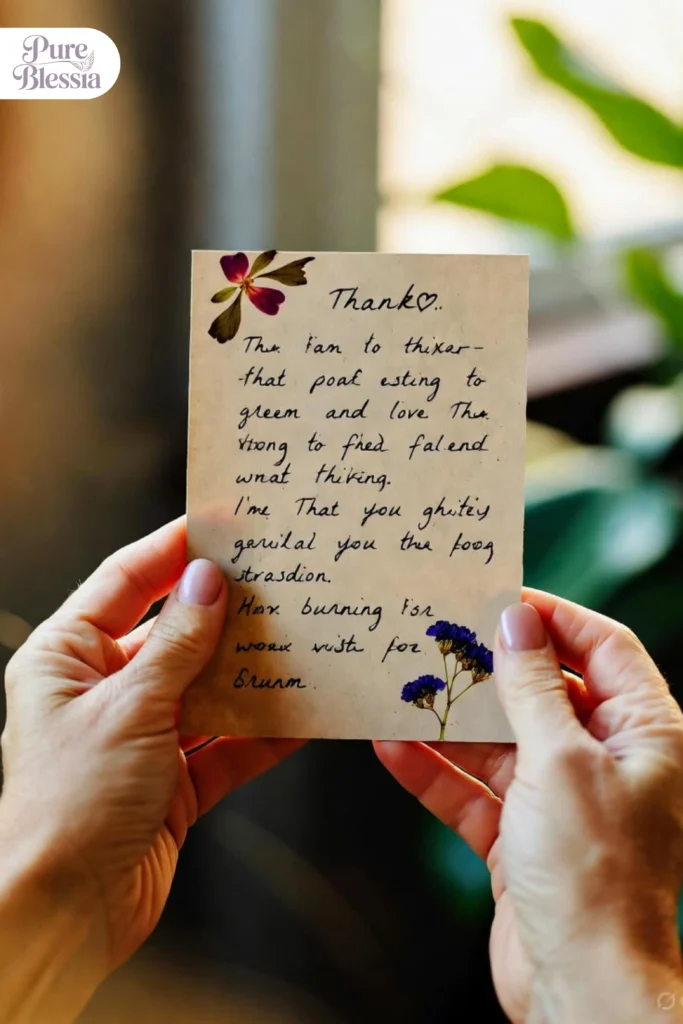 Pure
Blessia
Thank♡..
The Fam to thixar-
-that poaf esting to
green and love The
to fhed falend
wnat thiking.
I'me That you ghitey
you the foog
strasdion.
Hax burning For
for